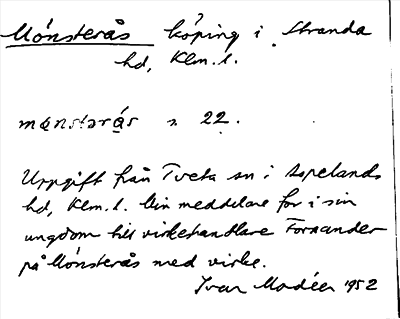 Mönsterås köping i Stranda
hd, Klm. l.
mǫnstərás n 22.
Uppgift från Tveta sn i Aspelands
hd, Klm. l. Min meddelare for i sin
ungdom till virkehandlare Fornander
på Mönsterås med virke.
Ivar Modéer 1952